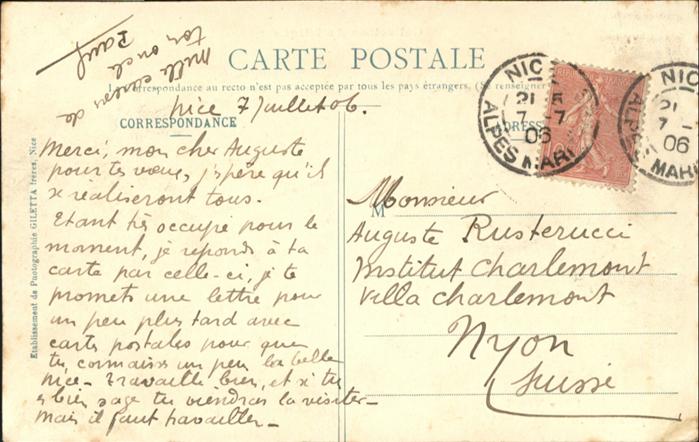 mille caresses de
ton oncle
Paul
CARTE POSTALE
La correspondance au recto n'est pas acceptée par tous les pays étrangers. (Se renseigner
Nice 7 Juillet 06.
CORRESPONDANCE
ADRESSE
Merci, mon cher Auguste
pour tes vœux, j'espère qu'ils
se realiseront tous.
Etant très occupé pour le
moment, je réponds à ta
carte par celle-ci, je te
promets une lettre pour
un peu plus tard avec
cartes postales pour que
tu connaisses un peu la belle
Nice - travaille bien, et si tu
es bien sage tu viendras la visiter -
mais il faut travailler -
Monsieur
Auguste Rusterucci
Institut Charlemont
Villa Charlemont
Nyon
Suisse
NICE
21 5
7 - 7
06
ALPES MARI
21
7 -
06
ALPES MARI
Etablissement de Photographie GILETTA frères, Nice